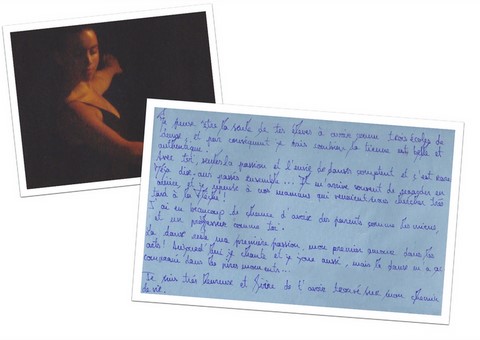 Je pense être la seule de tes élèves à avoir connu trois écoles de
danse, et par conséquent je sais combien la tienne est belle et
authentique.
Avec toi, seules la passion et l'envie de danser comptent et c'est rare
Déjà dix ans passés ensemble... Il m'arrive souvent de regarder en
arrière, et je repense à nos mamans qui venaient nous chercher très
tard à la
J'ai eu beaucoup de chance d'avoir des parents comme les miens,
et un professeur comme toi.
La danse reste ma première passion, mon premier amour dans les
arts! Aujourd'hui je chante et je joue aussi, mais la danse m'a
accompagnée dans les pires moments...
Je suis très heureuse et fière de t'avoir trouvé sur mon chemin
de vie.